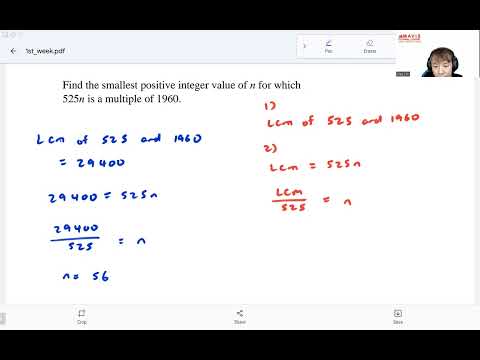 1st_week.pdf
Pen
Eraser
Find the smallest positive integer value of n for which
525n is a multiple of 1960.
LCM of 525 and 1960
= 29400
29400 = 525n
29400
525
= n
n = 56
1)
LCM of 525 and 1960
2)
LCM = 525n
LCM
525
= n
Crop
Share
Save